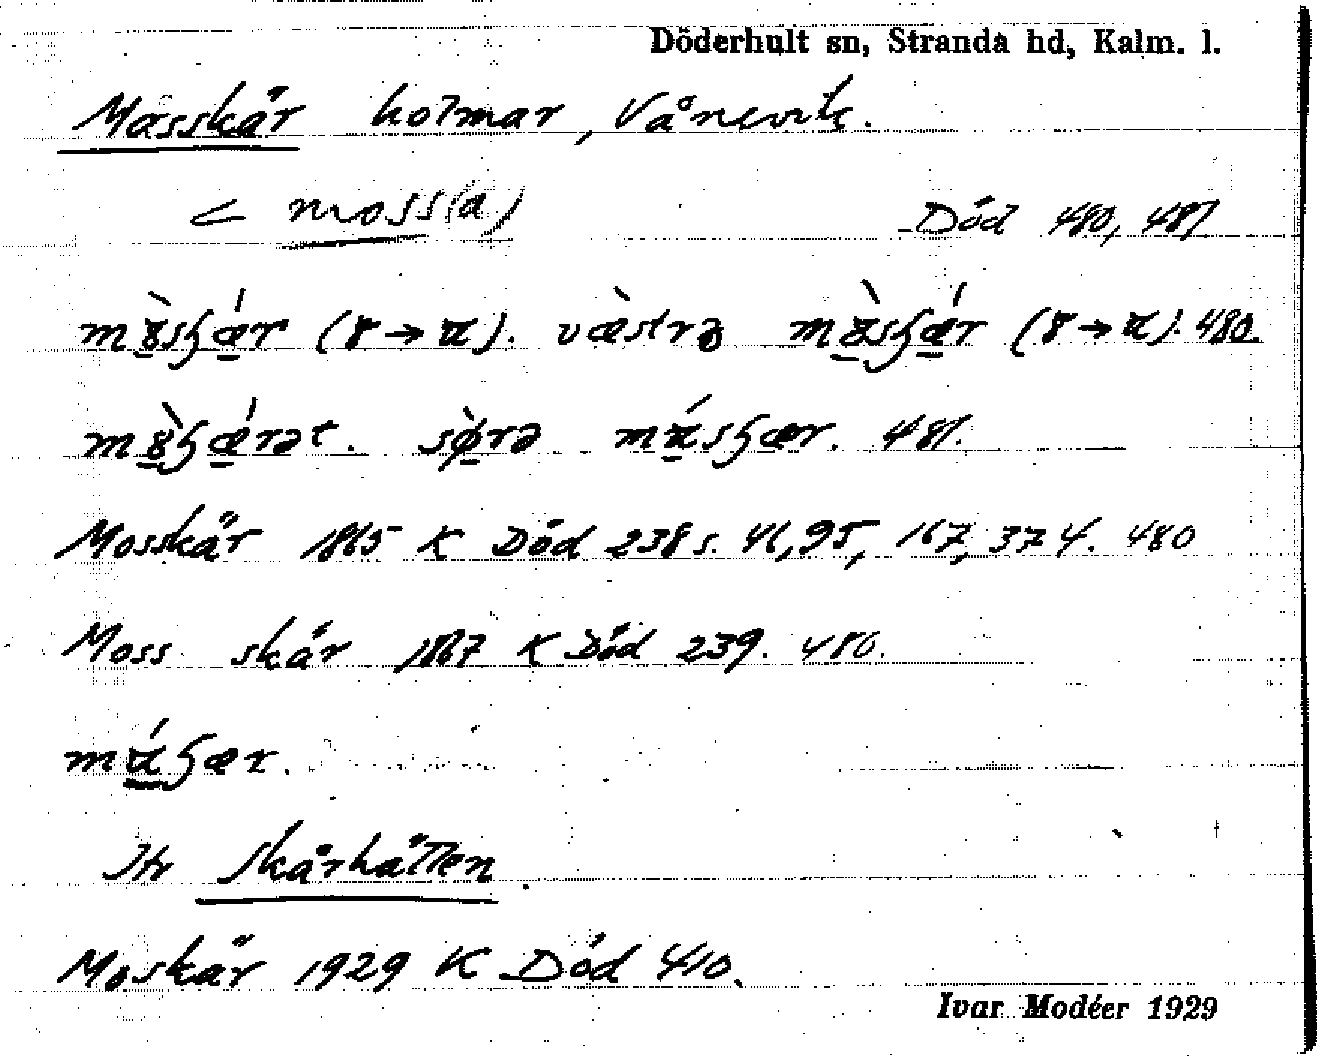 Döderhult sn, Stranda hd, Kalm. l.
Masskär holmar, Vånevik.
< moss(a) Död 480, 481
(ɤ → ɐ). væstrə (ɤ → ɐ). 480.
481.
Mosskär 1865 K Död 238 s. 46, 95, 167, 374. 480
Moss skär 1867 K Död 239. 480.
Jfr Skärhätten.
Moskär 1929 K Död 410.
Ivar Modéer 1929